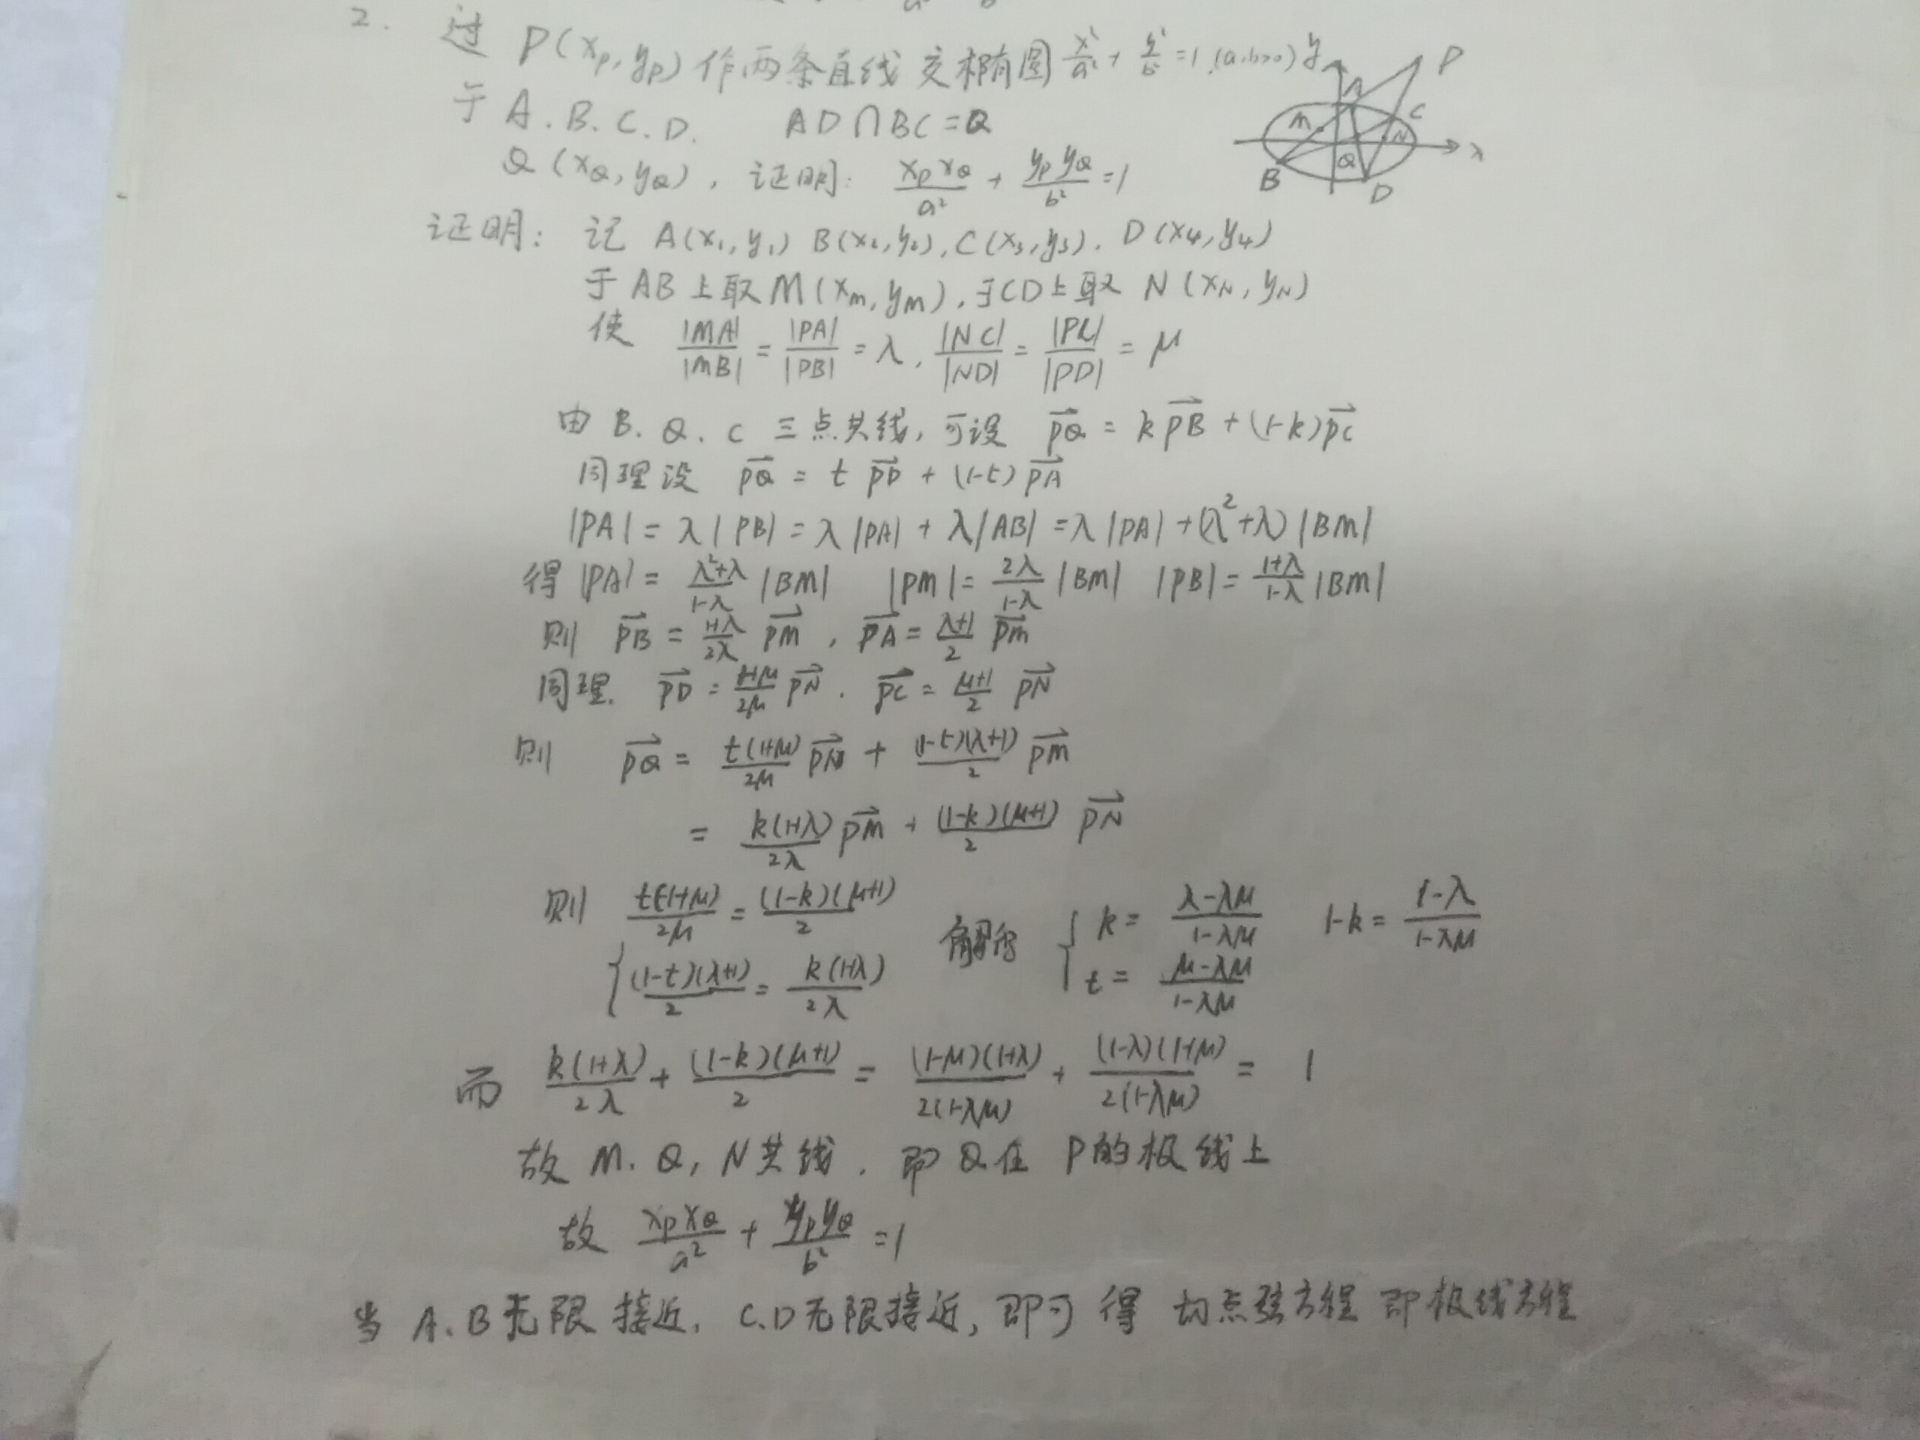 2. 过 P(xₚ, yₚ) 作两条直线交椭圆 x²/a² + y²/b² = 1 (a,b>0)
于 A.B.C.D. AD∩BC=Q
Q(x_Q, y_Q), 证明: xₚx_Q/a² + yₚy_Q/b² = 1
y P A C M N Q x B D
证明: 记 A(x₁,y₁) B(x₂,y₂), C(x₃,y₃). D(x₄,y₄)
于AB上取M(x_m, y_M), 于CD上取 N(x_N, y_N)
使 |MA|/|MB| = |PA|/|PB| = λ, |NC|/|ND| = |PC|/|PD| = μ
由 B.Q.C 三点共线, 可设 →PQ = k→PB + (1-k)→PC
同理设 →PQ = t→PD + (1-t)→PA
|PA| = λ|PB| = λ|PA| + λ|AB| = λ|PA| + (λ²+λ)|BM|
得 |PA| = (λ²+λ)/(1-λ) |BM| |PM| = 2λ/(1-λ) |BM| |PB| = (1+λ)/(1-λ) |BM|
则 →PB = (1+λ)/2λ →PM, →PA = (λ+1)/2 →PM
同理. →PD = (1+μ)/2μ →PN. →PC = (μ+1)/2 →PN
则 →PQ = t(1+μ)/2μ →PN + (1-t)(λ+1)/2 →PM
= k(1+λ)/2λ →PM + (1-k)(μ+1)/2 →PN
则 { t(1+μ)/2μ = (1-k)(μ+1)/2 解得 { k = (λ-λμ)/(1-λμ) 1-k = (1-λ)/(1-λμ)
(1-t)(λ+1)/2 = k(1+λ)/2λ t = (μ-λμ)/(1-λμ)
而 k(1+λ)/2λ + (1-k)(μ+1)/2 = (1-μ)(1+λ)/2(1-λμ) + (1-λ)(1+μ)/2(1-λμ) = 1
故 M.Q,N共线. 即Q在 P的极线上
故 xₚx_Q/a² + yₚy_Q/b² = 1
当 A.B无限接近, C.D无限接近, 即可得 切点弦方程 即极线方程